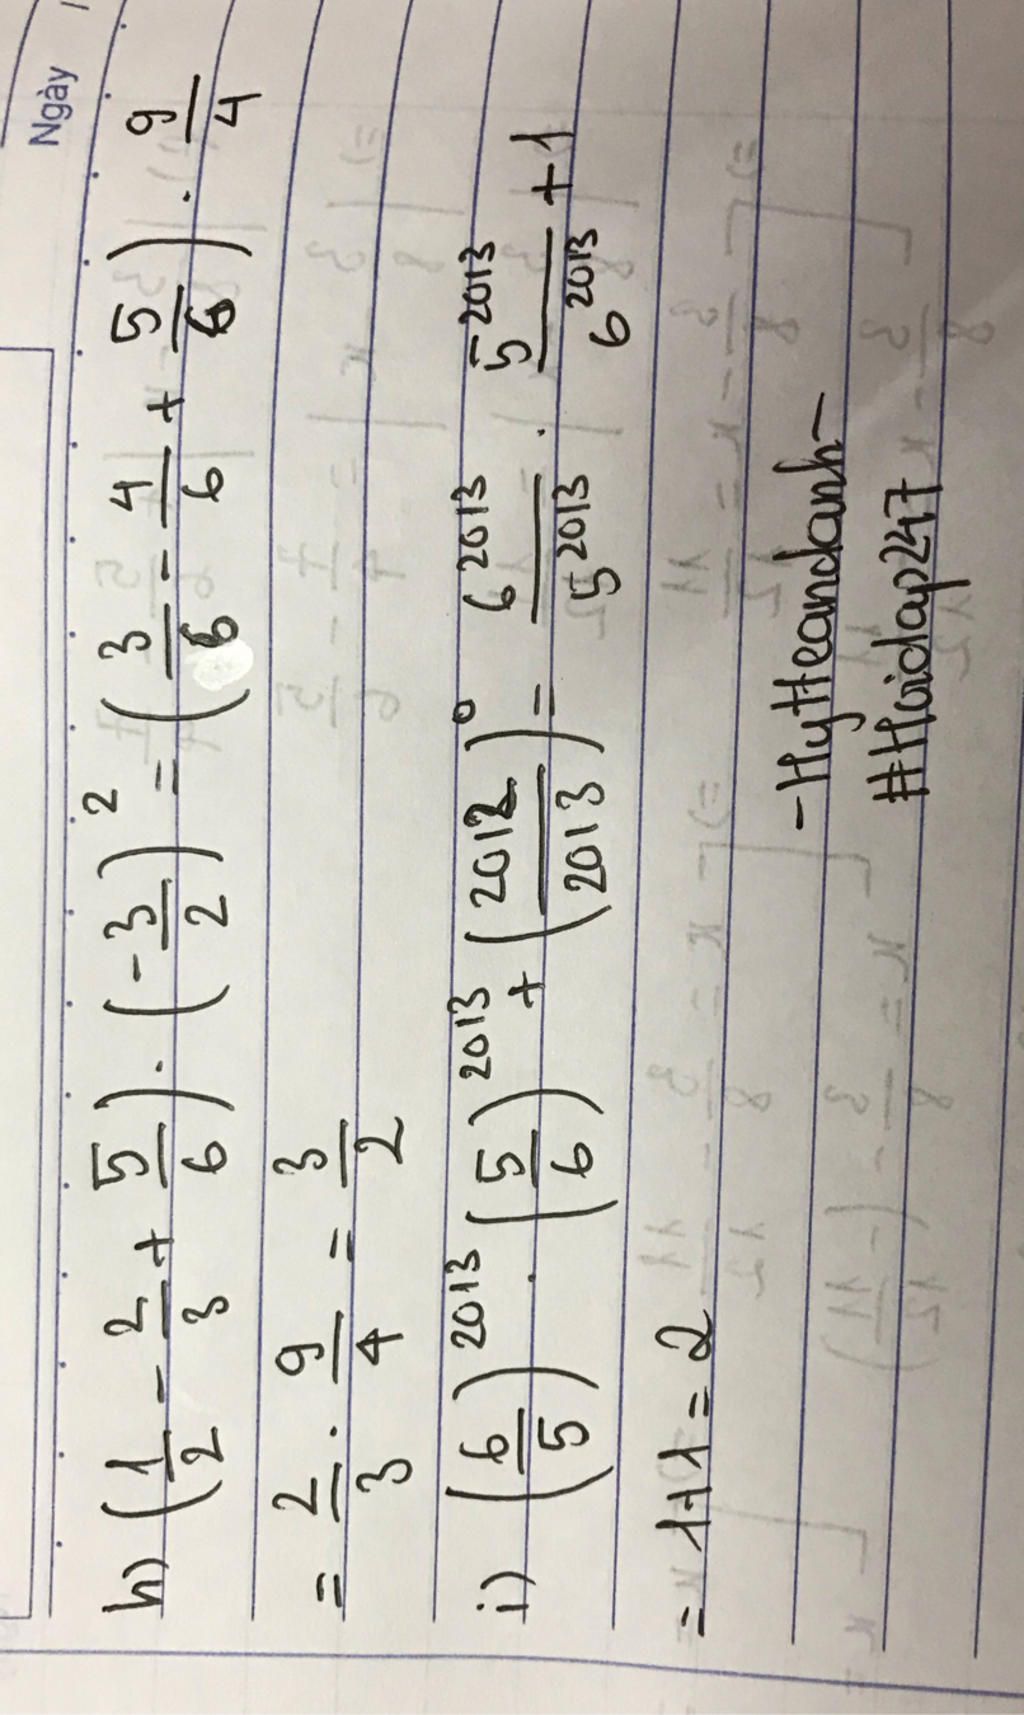 Ngày /
h) (1/2 - 2/3 + 5/6) . (-3/2)² = (3/6 - 4/6 + 5/6) . 9/4
= 2/3 . 9/4 = 3/2
i) (6/5)²⁰¹³ . (5/6)²⁰¹³ + (2012/2013)⁰ = 6²⁰¹³/5²⁰¹³ . 5²⁰¹³/6²⁰¹³ + 1
= 1+1 = 2
-Hytteandanh-
#Hoidap247